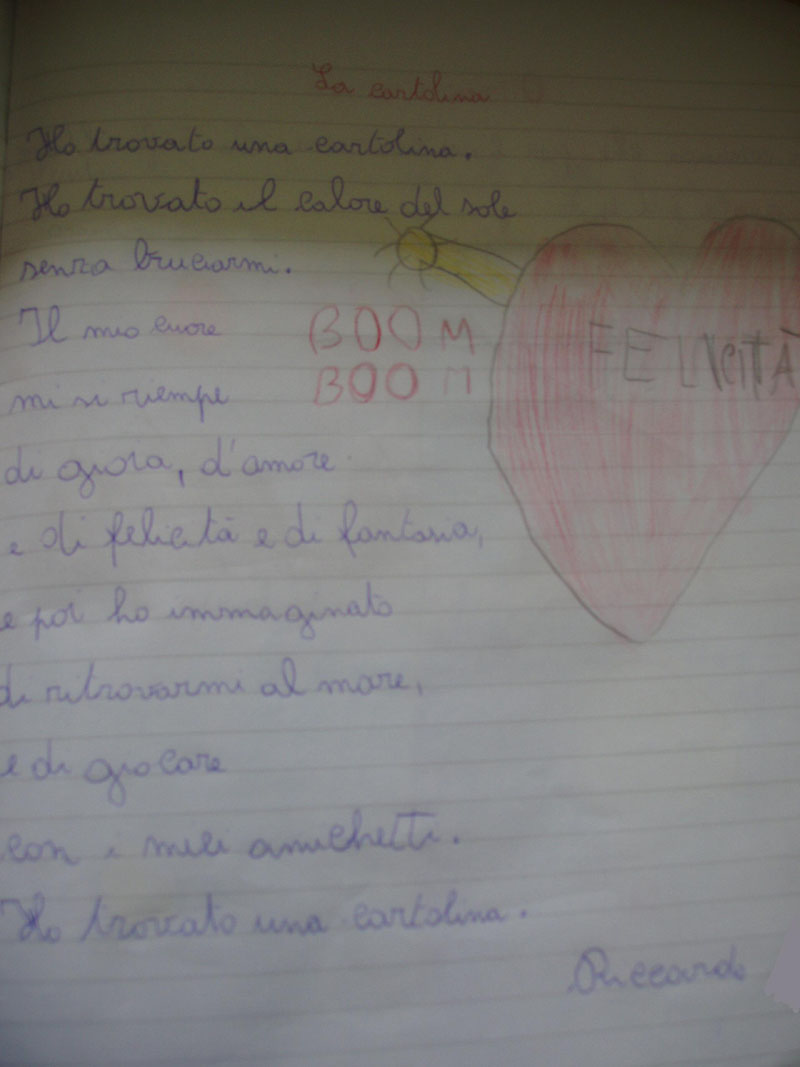 La cartolina
Ho trovato una cartolina.
Ho trovato il calore del sole
senza bruciarmi.
Il mio cuore
BOOM
mi si riempe
BOOM
FELICITÀ
di gioia, d'amore
e di felicità e di fantasia,
e poi ho immaginato
di ritrovarmi al mare,
e di giocare
con i miei amichetti.
Ho trovato una cartolina.
Riccardo